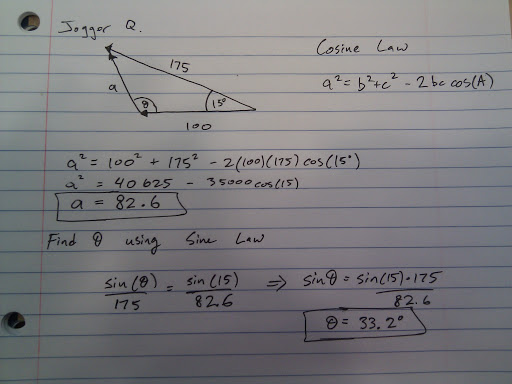 Jogger Q.
Cosine Law
a² = b² + c² - 2bc cos(A)
175
a
θ
15°
100
a² = 100² + 175² - 2(100)(175) cos(15°)
a² = 40625 - 35000cos(15)
a = 82.6
Find θ using Sine Law
sin(θ)/175 = sin(15)/82.6 ⇒ sinθ = sin(15)·175/82.6
θ = 33.2°